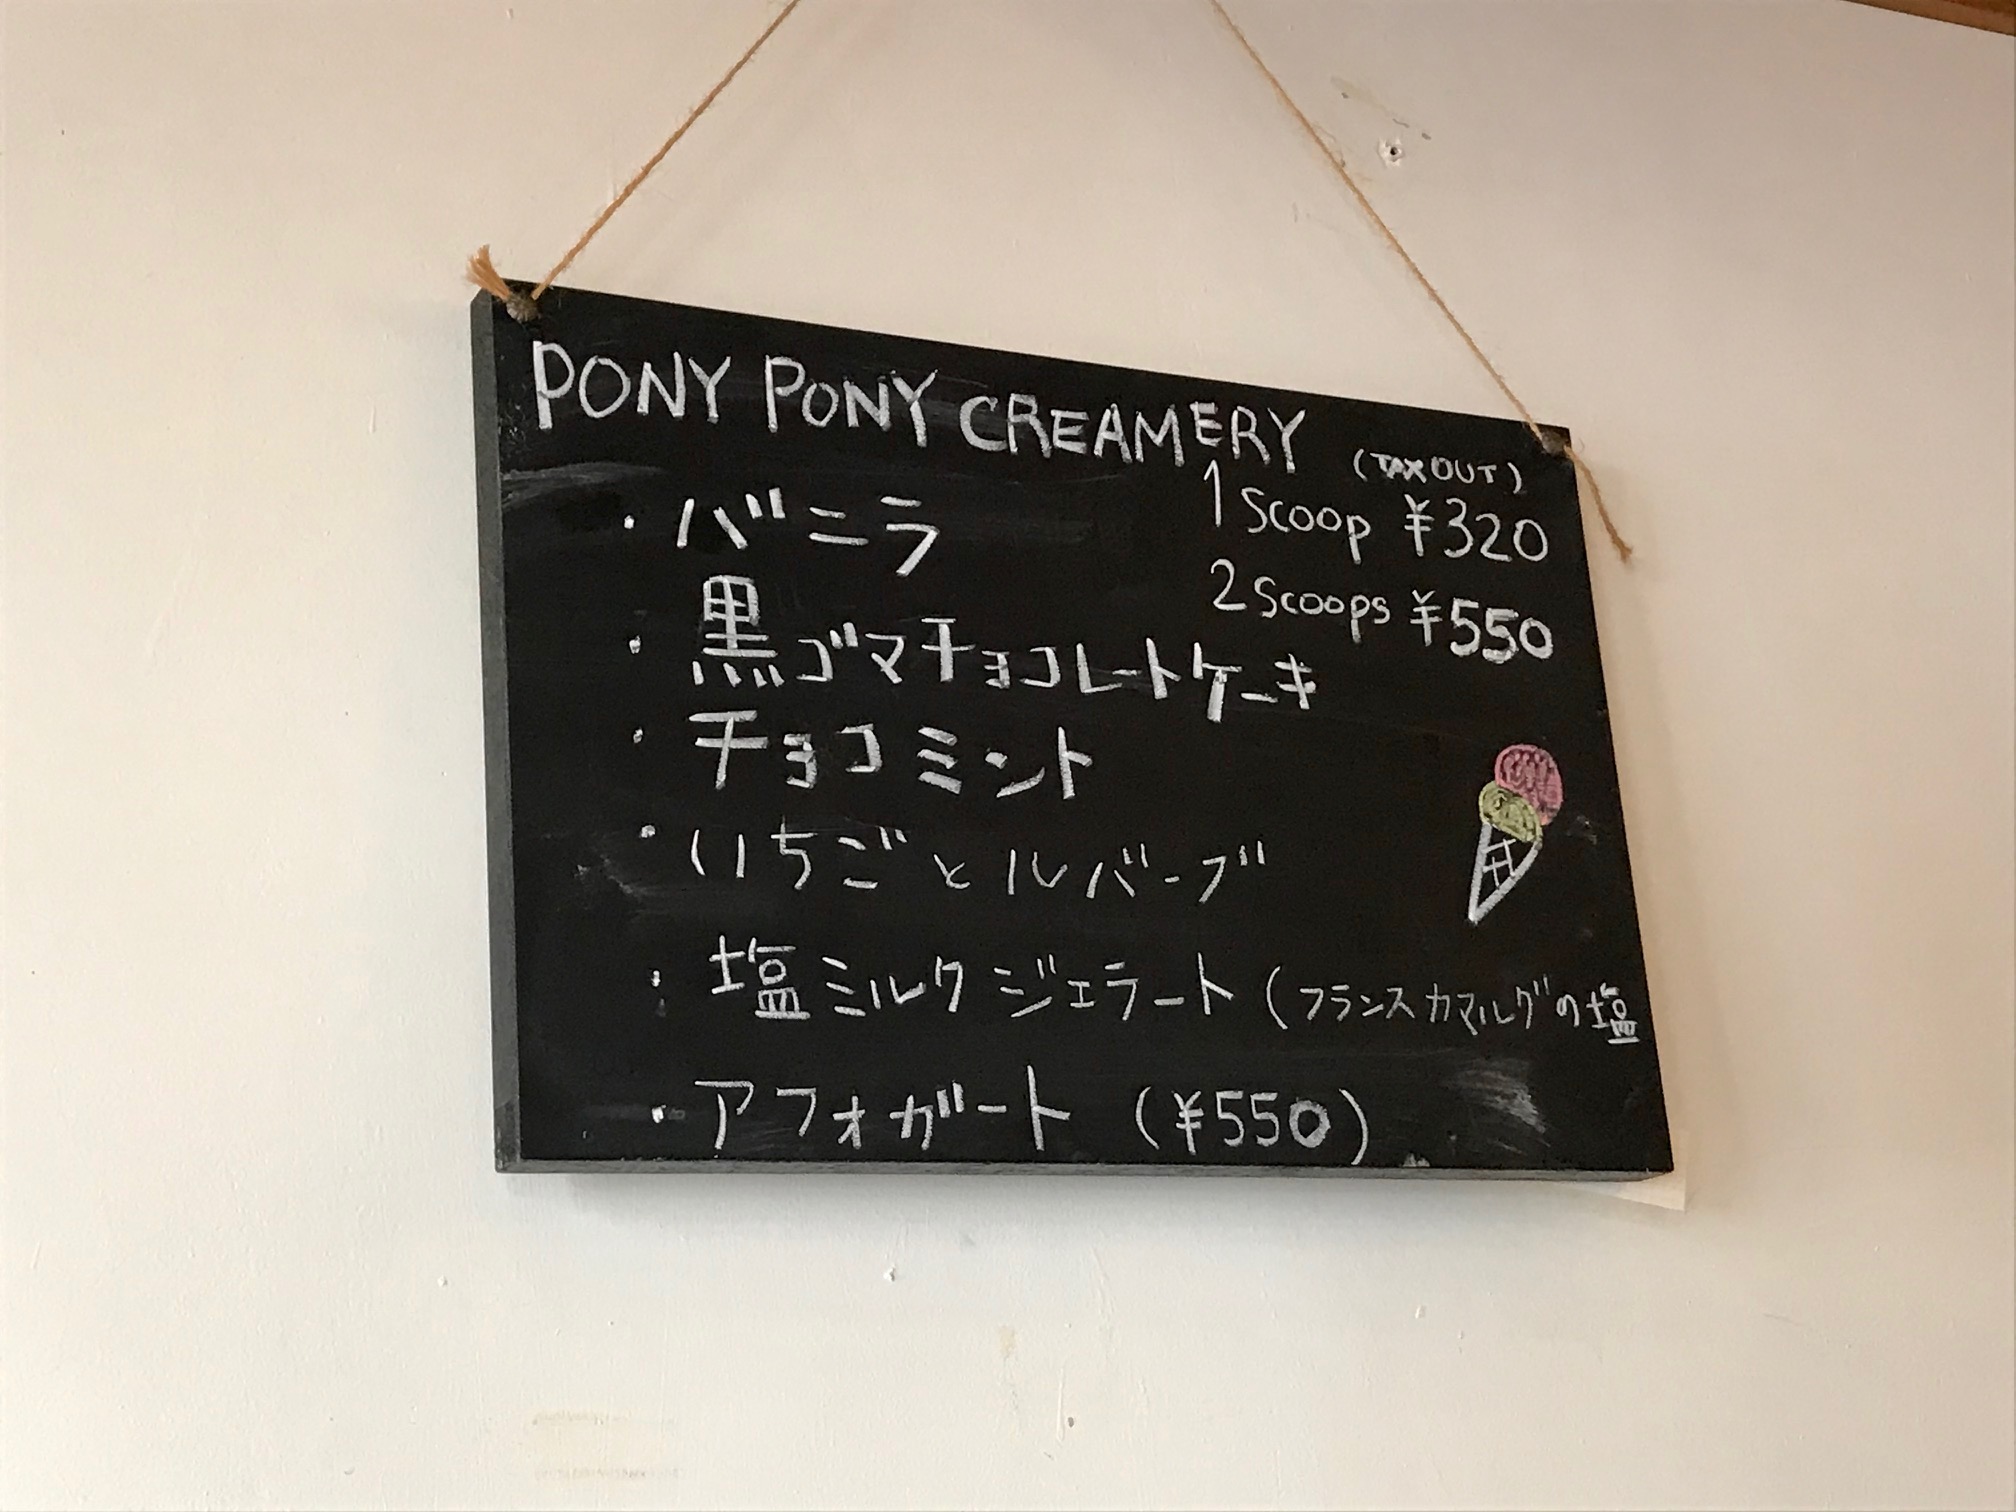 PONY PONY CREAMERY
(TAX OUT)
1 Scoop ¥320
2 Scoops ¥550
・バニラ
・黒ゴマチョコレートケーキ
・チョコミント
・いちごとルバーブ
・塩ミルクジェラート(フランスカマルグの塩
・アフォガート (¥550)